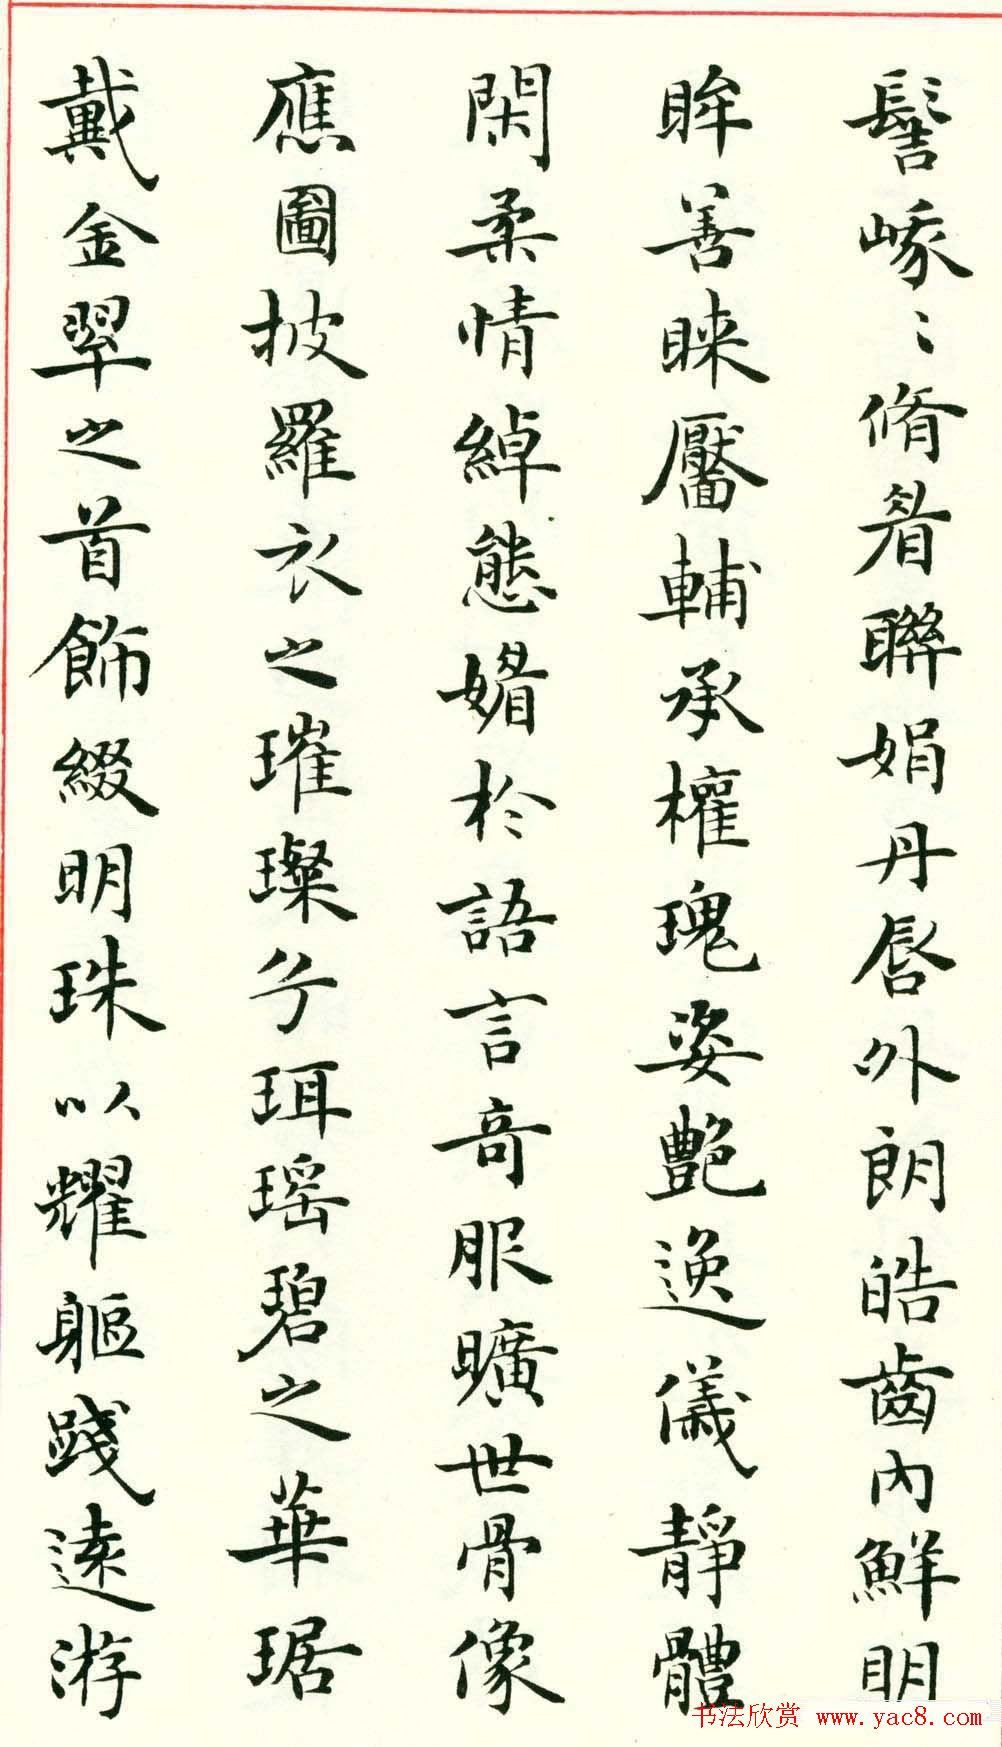 髻峨〻脩眉聯娟丹唇外朗皓齒內鮮明
眸善睞靨輔承權瑰姿艷逸儀靜體
閑柔情綽態媚於語言奇服曠世骨像
應圖披羅衣之璀璨兮珥瑤碧之華琚
戴金翠之首飾綴明珠以耀軀踐遠游
书法欣赏 www.yac8.com